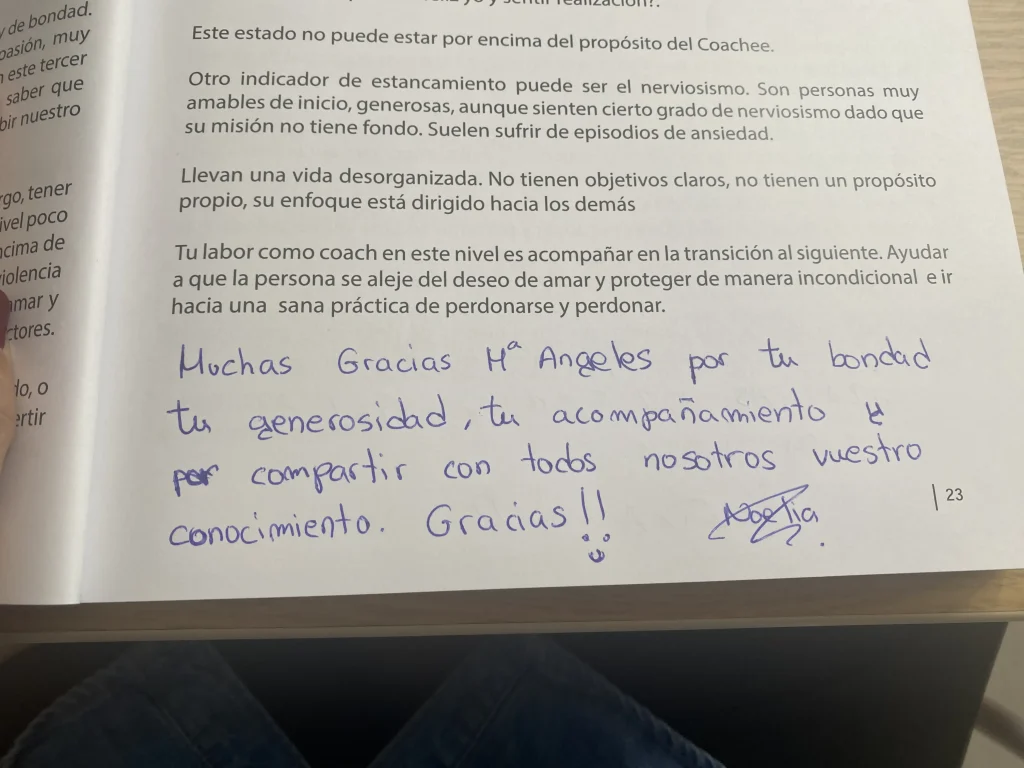 y de bondad.
pasión, muy
este tercer
saber que
bir nuestro
rgo, tener
ivel poco
ncima de
violencia
amar y
ctores.
do, o
ertir
y sentir realización?.
Este estado no puede estar por encima del propósito del Coachee.
Otro indicador de estancamiento puede ser el nerviosismo. Son personas muy
amables de inicio, generosas, aunque sienten cierto grado de nerviosismo dado que
su misión no tiene fondo. Suelen sufrir de episodios de ansiedad.
Llevan una vida desorganizada. No tienen objetivos claros, no tienen un propósito
propio, su enfoque está dirigido hacia los demás
Tu labor como coach en este nivel es acompañar en la transición al siguiente. Ayudar
a que la persona se aleje del deseo de amar y proteger de manera incondicional e ir
hacia una sana práctica de perdonarse y perdonar.
Muchas Gracias Mª Angeles por tu bondad
tu generosidad, tu acompañamiento y
por compartir con todos nosotros vuestro
conocimiento. Gracias!!
Noelia
| 23